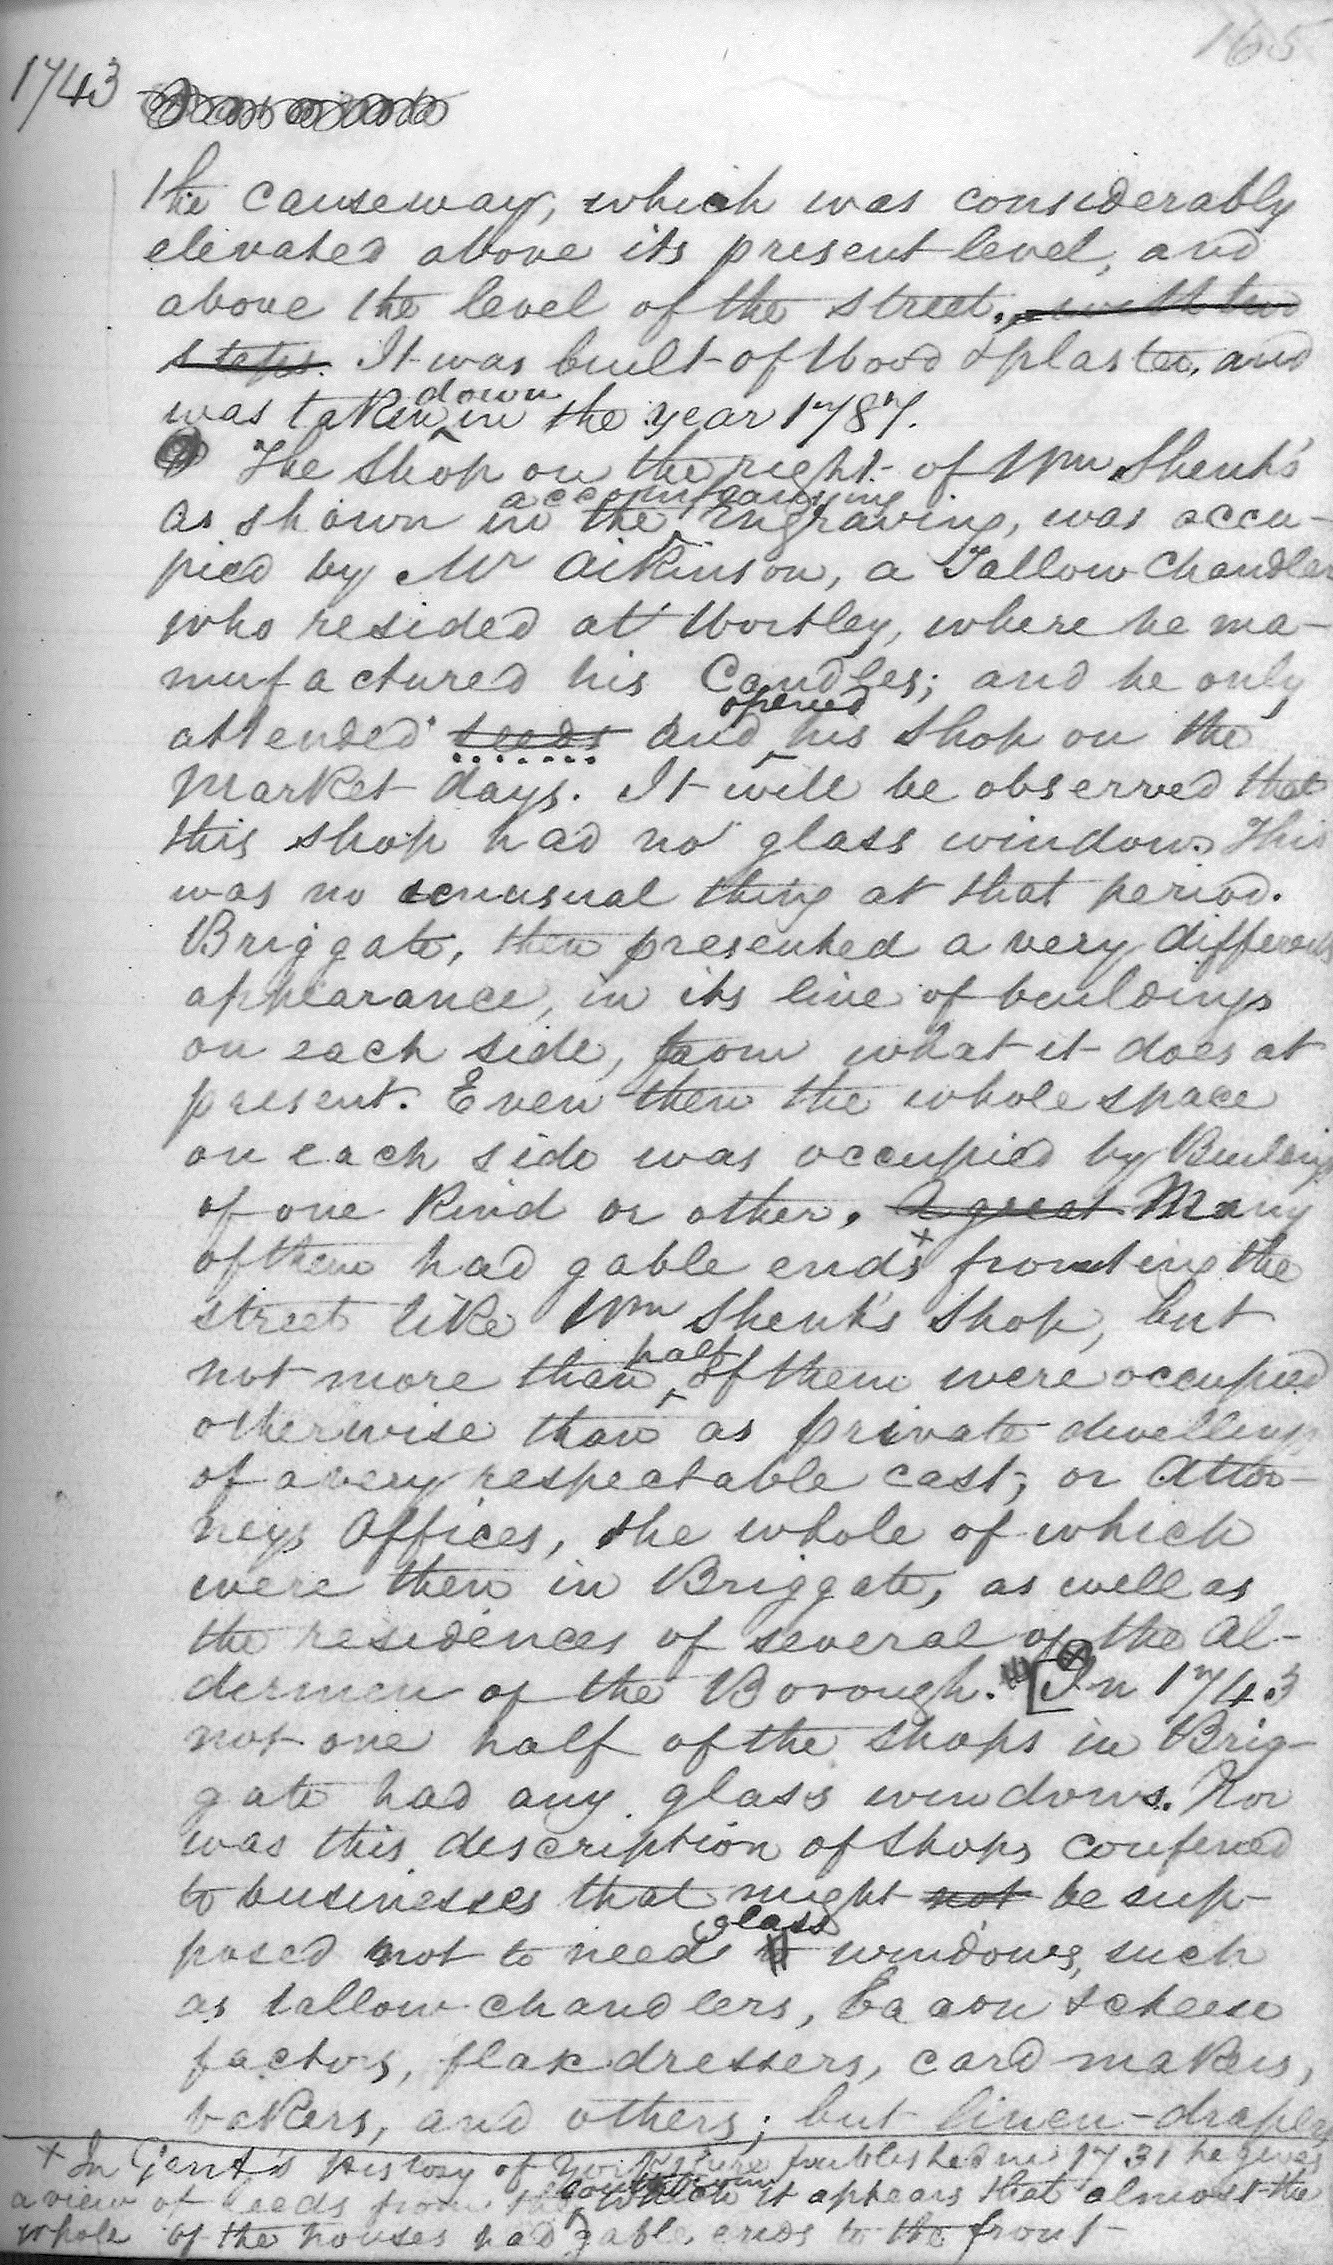 165
1743
the causeway, which was considerably
elevated above its present level, and
above the level of the street. with two
steps. It was built of Wood & plaster, and
down
was taken in the year 1787.
The Shop on the right of Wm Shenk's
accompanying
as shown in the Engraving, was occu-
pied by Mr Aikinson, a Tallow Chandler
who resided at Wortley, where he ma-
nufactured his Candles; and he only
opened
attended Leeds and his Shop on the
Market days. It will be observed that
this shop had no glass window. This
was no unusual thing at that period.
Briggate, then presented a very different
appearance, in its line of buildings
on each side, from what it does at
present. Even then the whole space
on each side was occupied by Buildings
of one kind or other. A great Many
of them had gable ends + fronting the
street like Wm Shenk's Shop, but
half
not more than of them were occupied
otherwise than as private dwellings
of a very respectable cast; or Attor-
neys Offices, the whole of which
were then in Briggate, as well as
the residences of several of the Al-
dermen of the Borough. [In 1743
not one half of the shops in Brig-
gate had any glass windows. Nor
was this description of Shops confined
to businesses that might not be sup-
glass
posed not to need windows, such
as tallow-chandlers, Bacon & cheese
factors, flax dressers, card-makers,
bakers, and others; but linen-drapers
+ In Gent's History of Yorkshire published in 1731 he gives
a view of Leeds from the which it appears that almost the
whole of the houses had gable ends to the front